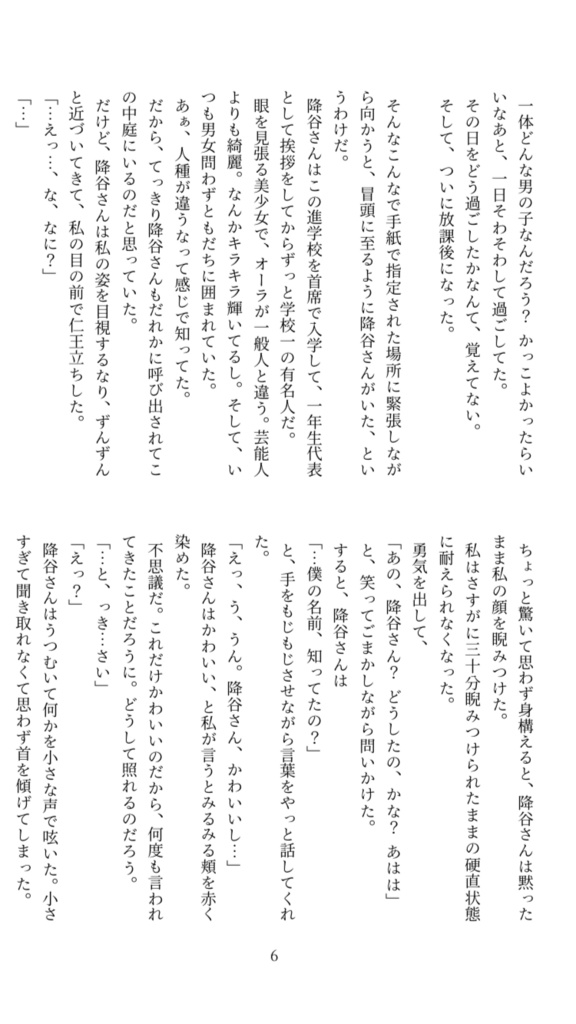 一体どんな男の子なんだろう？ かっこよかったらい
いなあと、一日そわそわして過ごしてた。
その日をどう過ごしたかなんて、覚えてない。
そして、ついに放課後になった。
そんなこんなで手紙で指定された場所に緊張しなが
ら向かうと、冒頭に至るように降谷さんがいた、とい
うわけだ。
降谷さんはこの進学校を首席で入学して、一年生代表
として挨拶をしてからずっと学校一の有名人だ。
眼を見張る美少女で、オーラが一般人と違う。芸能人
よりも綺麗。なんかキラキラ輝いてるし。そして、い
つも男女問わずともだちに囲まれていた。
あぁ、人種が違うなって感じで知ってた。
だから、てっきり降谷さんもだれかに呼び出されてこ
の中庭にいるのだと思っていた。
だけど、降谷さんは私の姿を目視するなり、ずんずん
と近づいてきて、私の目の前で仁王立ちした。
「…えっ…、な、なに？」
「…」
ちょっと驚いて思わず身構えると、降谷さんは黙った
まま私の顔を睨みつけた。
私はさすがに三十分睨みつけられたままの硬直状態
に耐えられなくなった。
勇気を出して、
「あの、降谷さん？ どうしたの、かな？ あはは」
と、笑ってごまかしながら問いかけた。
すると、降谷さんは
「…僕の名前、知ってたの？」
と、手をもじもじさせながら言葉をやっと話してくれ
た。
「えっ、う、うん。降谷さん、かわいいし…」
降谷さんはかわいい、と私が言うとみるみる頬を赤く
染めた。
不思議だ。これだけかわいいのだから、何度も言われ
てきたことだろうに。どうして照れるのだろう。
「…と、っき…さい」
「えっ？」
降谷さんはうつむいて何かを小さな声で呟いた。小さ
すぎて聞き取れなくて思わず首を傾げてしまった。
6